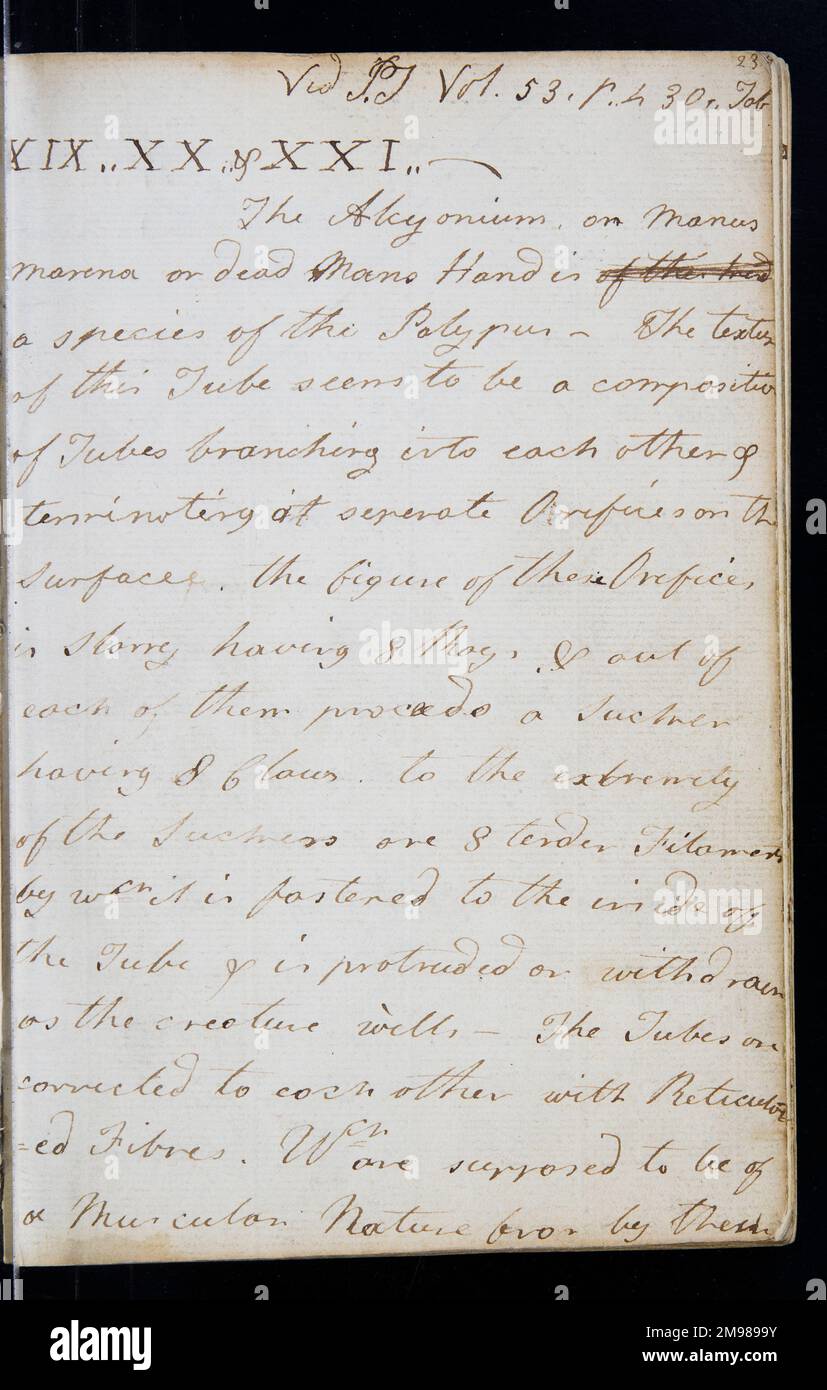 23
Vid P.T Vol. 53. p. 430. Tab
XIX,, XX,, & XXI,,
The Alcyonium, or Manus
marina or dead Mans Hand is of the kind
a species of the Polypus – The textur
of this Tube seems to be a compositio
of Tubes branching into each other &
terminating at seperate Orefices on the
surface. the figure of these Orefices
is starry having 8 Rays. & out of
each of them proceeds a Sucker
having 8 Claws. to the extremity
of the Suckers are 8 tender Filaments
by wch it is fastened to the inside of
the Tube & is protruded or withdrawn
as the creature wills – The Tubes are
connected to each other with Reticulat
=ed Fibres. Wch are supposed to be of
a Muscular Nature for by them
alamy
Image ID: 2M9899Y
www.alamy.com